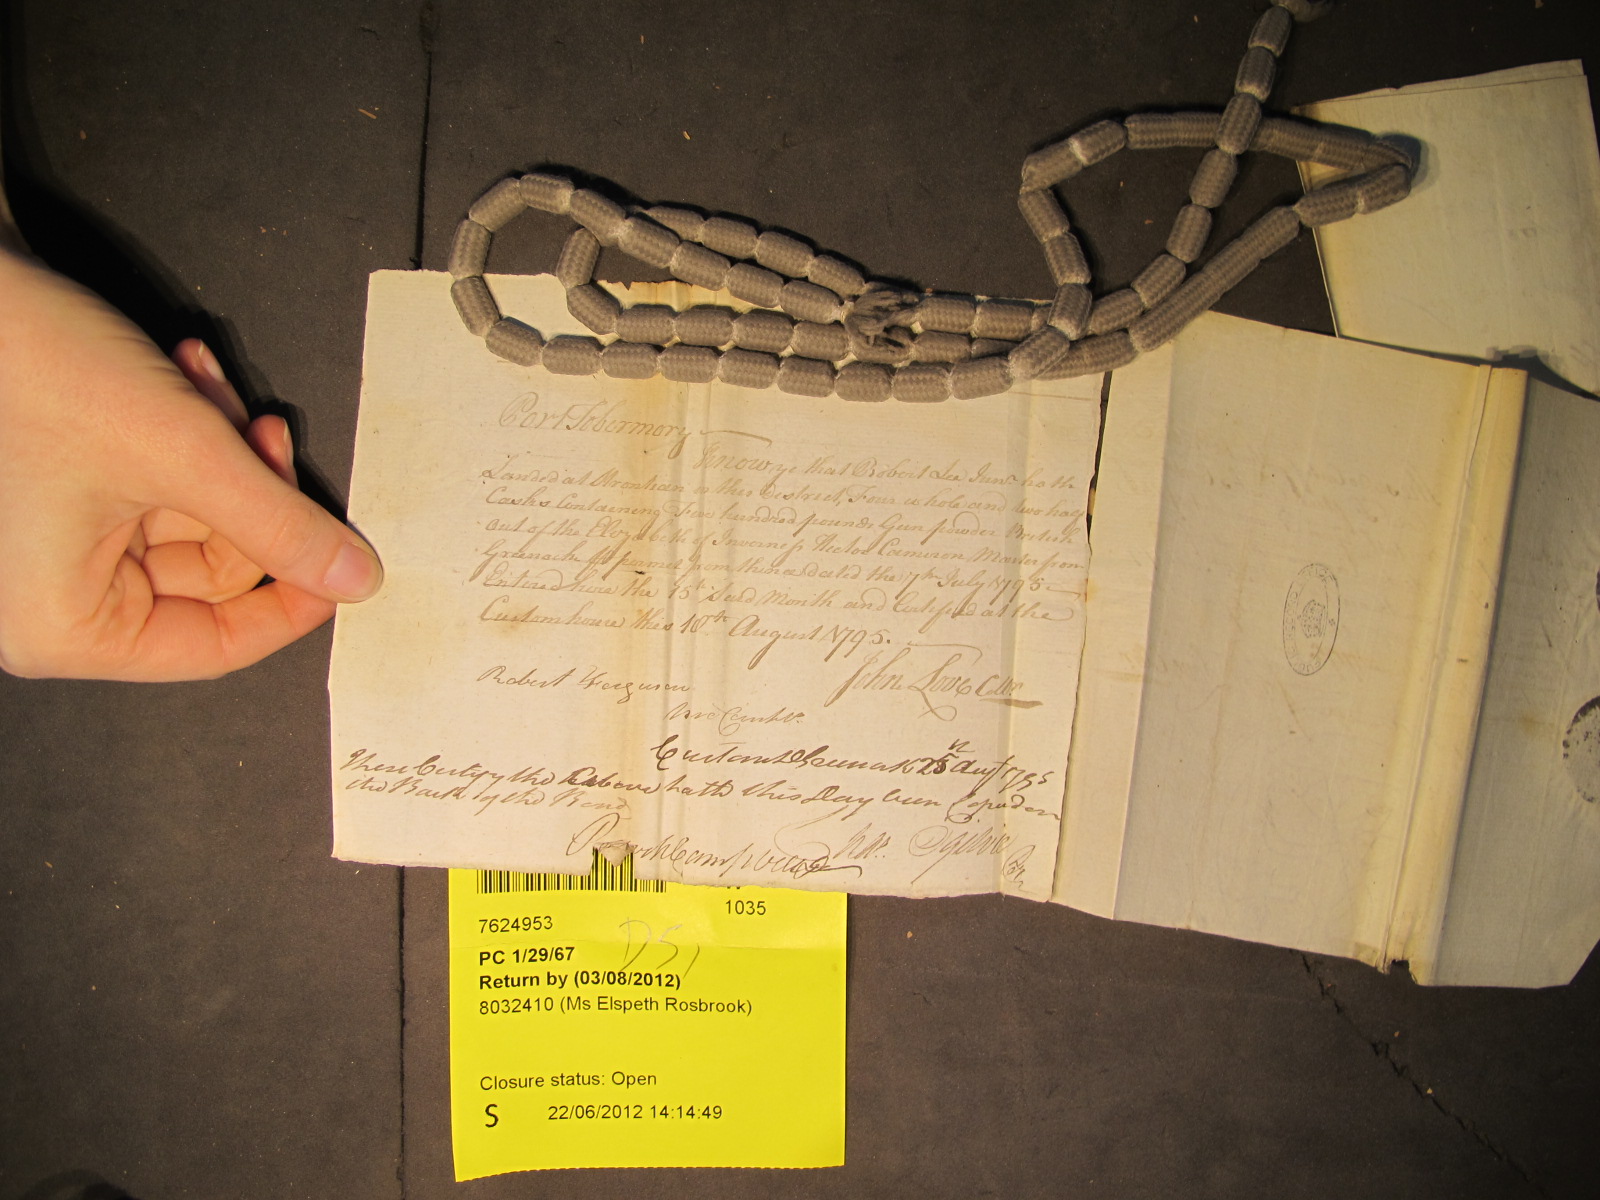 Port Tobermory
Know ye that Robert Lee Junr. hath
Landed at Strontian in this District, Four whole and two half
Casks Containing Five hundred pounds Gun powder British
out of the Elizabeth of Inverness Hector Cameron Master from
Greenock pr permit from thence dated the 7th July 1795
Entered here the 15th Said Month and Certified at the
Customhouse this 18th August 1795.
John Love Collr.
Robert Ferguson
Custom Greenock 25th Augt 1795
These Certify the Above hath this Day been
the Back of the Bond
Campbell
Ogilvie
1035
7624953
D51
PC 1/29/67
Return by (03/08/2012)
8032410 (Ms Elspeth Rosbrook)
Closure status: Open
S 22/06/2012 14:14:49